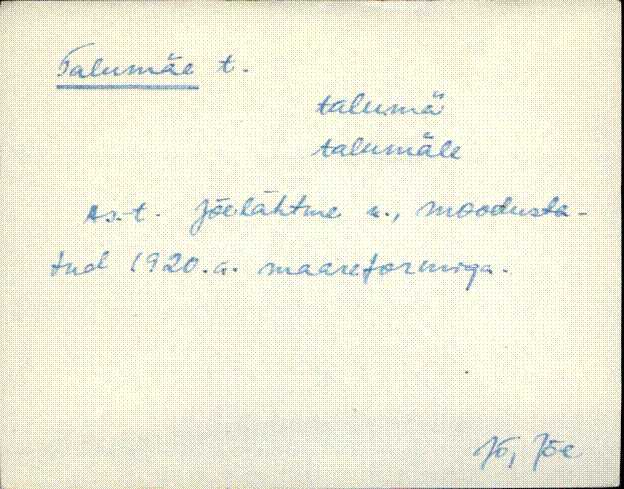 Talumäe t.
talumä
talumäle
As.-t. Jõelähtme k., moodusta-
tud 1920.a. maareformiga.
Jõ, Jõe